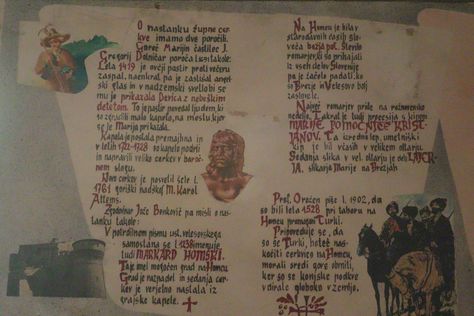 O nastanku župne cer-
kve imamo dve poročili.
Goreč Marijin častilec J.
Gregorij Dolničar poroča tesisk ole:
Leta 1419 je neki pastir proti večeru
zaspal, naenkrat pa je zaslišal angel-
ski glas in v nadzemski svetlobi se
mu je prikazala Devica z nebeškim
detetom. To je pastir povedal ljudem, ki
so zgradili malo kapelo, na mestu kjer
se je Marija prikazala.
Kapela je postala premajhna in
v letih 1722-1728 so kapelo podrli
in napravili veliko cerkev v baroč-
nem slogu.
Novo cerkev je posvetil šele l.
1761 goriški nadškof M. Karol
Attems.
Zgodovinar Jože Benkovič pa misli o nas-
tanku takole:
V potrdilnem pismu ust. velesovskega
samostana se l. 1238 imenuje
tudi MARKARD HOMŠKI.
Taje mel mogočen grad na Homcu
Grad je razpadel in sedanja cer-
kev je verjetno nastala iz
grajske kapele.
Na Homcu je bila v
starodavnih časih slo-
veča božja pot. Število
romarjev, ki so prihajali
iz vseh delov Slovenije
pa je začelo padati, ko
so Brezje in Velesovo bolj
zaslovele.
Največ romarjev pride na rožnarensko
nedeljo. Takrat je tudi procesija s kipom
MARIJE POMOČNICE KRIST-
JANOV. Ta izredno lep, umetniški
kip je bil včasih v velikem oltarju.
Sedanja slika v vel. oltarju je delo LAYER-
JA, slikarja Marije na Brezjah.
Prof. Orožen piše l. 1902, da
so bili leta 1528 pri taboru na
Homcu premagani Turki.
Pripoveduje se, da
so še Turki, hoteč nas-
kočiti cerkvico na Homcu,
morali sredi gore obrniti,
ker so se konjske podkve
vdirale globoko v zemljo.